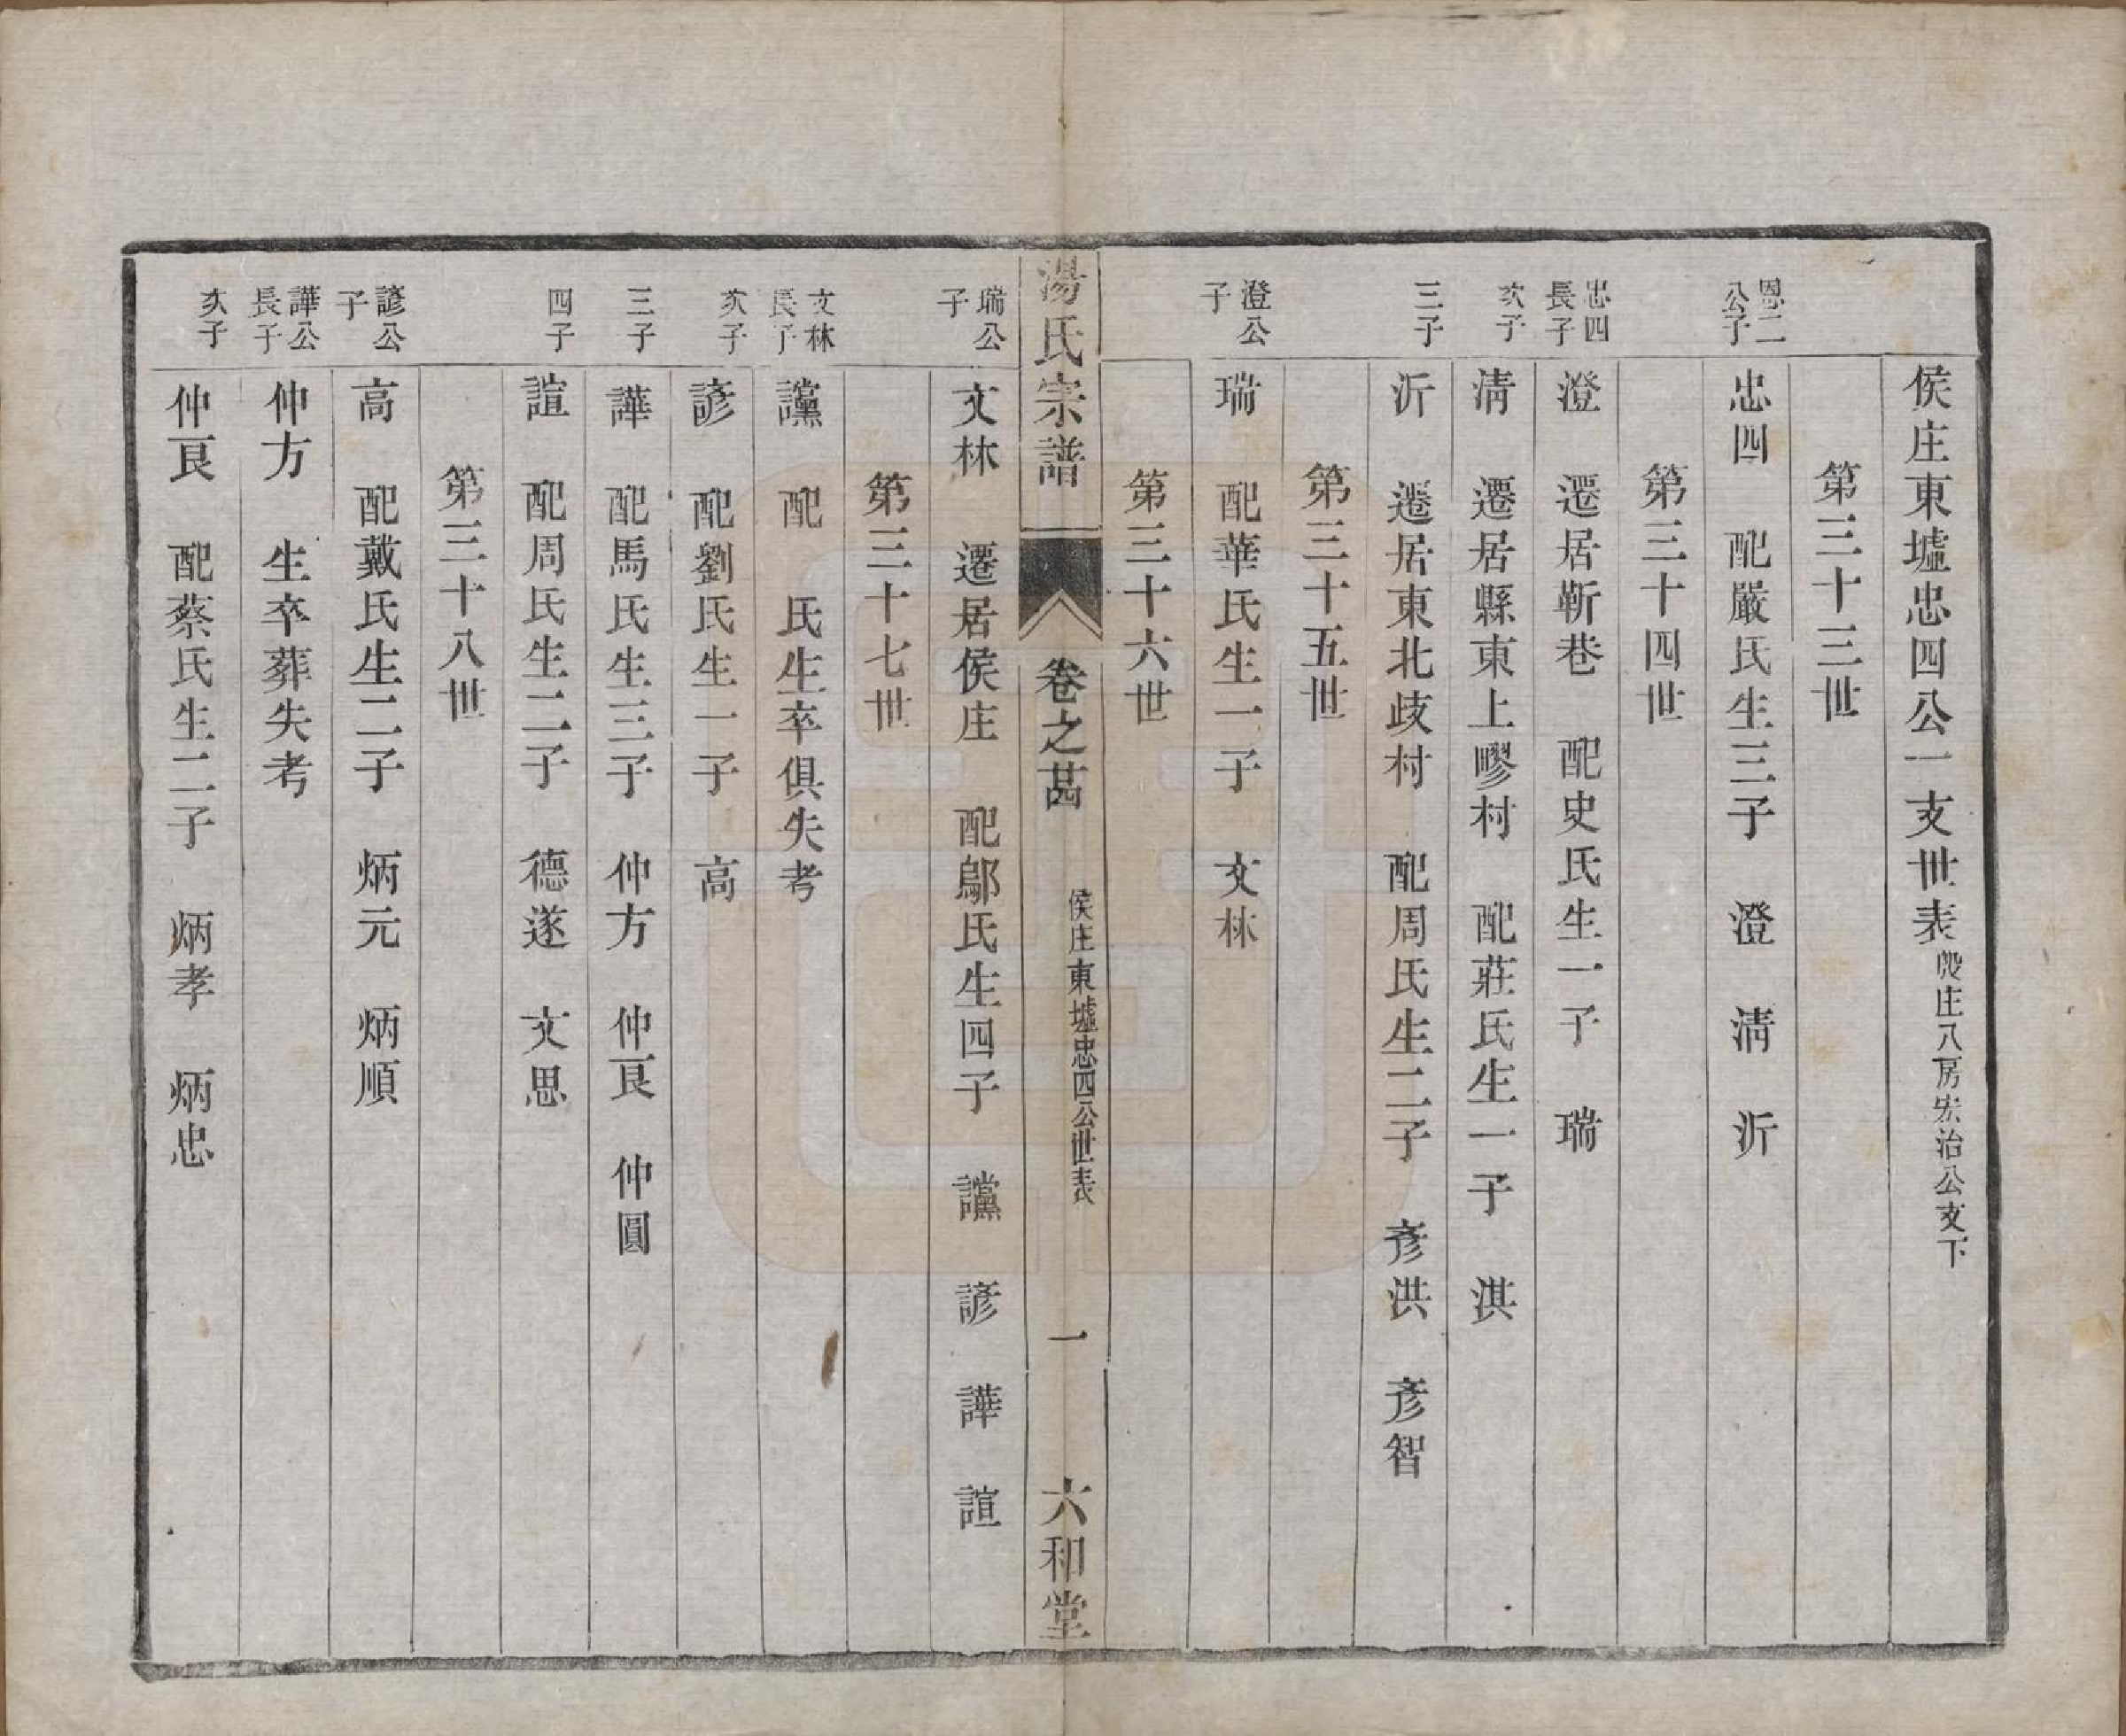 侯庄東墟忠四公一支世表殷庄八房宏治公支下
第三十三世
恩二公子
忠四　配嚴氏生三子　澄　淸　沂
第三十四世
忠四長子
澄　遷居靳巷　配史氏生一子　瑞
次子
淸　遷居縣東上䟏村　配莊氏生一子　淇
三子
沂　遷居東北歧村　配周氏生二子　彥洪　彥智
第三十五世
澄公子
瑞　配華氏生一子　文林
第三十六世
湯氏宗譜　卷之甚　侯庄東墟忠四公世表　一　六和堂
瑞公子
文林　遷居侯庄　配鄔氏生四子　讜　諺　譁　諠
第三十七世
文林長子
讜　配　氏生卒俱失考
次子
諺　配劉氏生一子　高
三子
譁　配馬氏生三子　仲方　仲良　仲圓
四子
諠　配周氏生二子　德遂　文思
第三十八世
諺公子
高　配戴氏生二子　炳元　炳順
譁公長子
仲方　生卒葬失考
次子
仲良　配蔡氏生二子　炳孝　炳忠